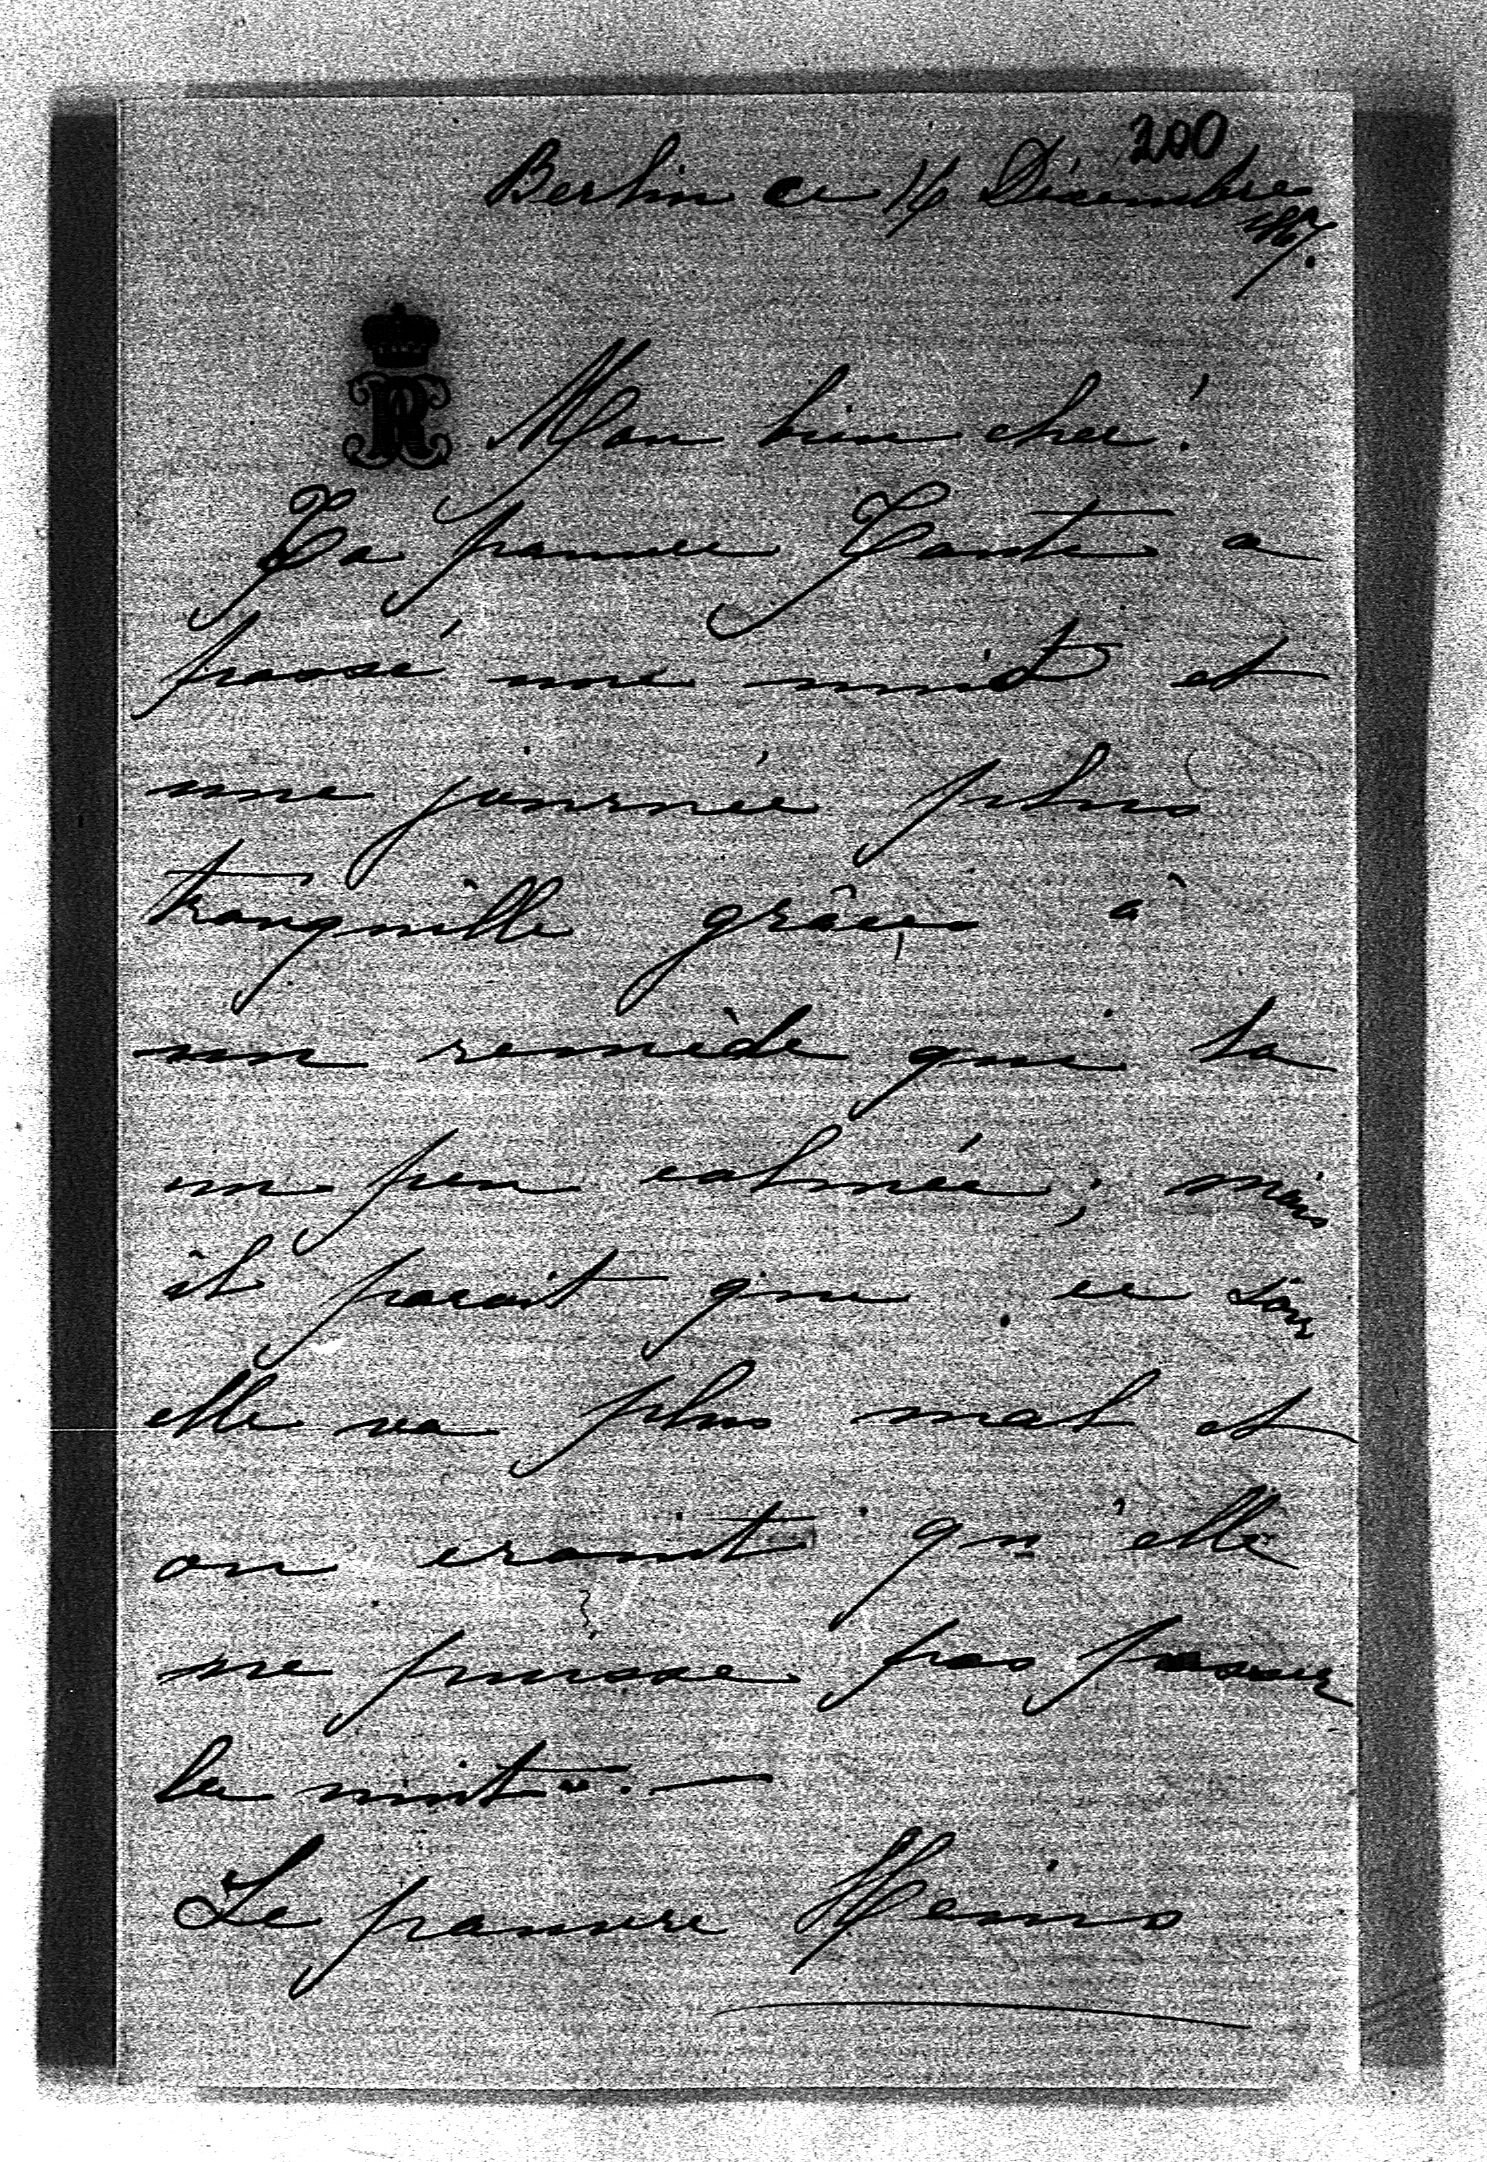 200
Berlin ce 14 Décembre
187.
Mon bien cher!
Ta pauvre Tante a
passé une nuit et
une journée plus
tranquille grâces à
un remède qui l'a
un peu calmée; mais
il parait que ce soir
elle va plus mal et
on craint qu'elle
ne puisse pas passer
la nuit. —
Le pauvre